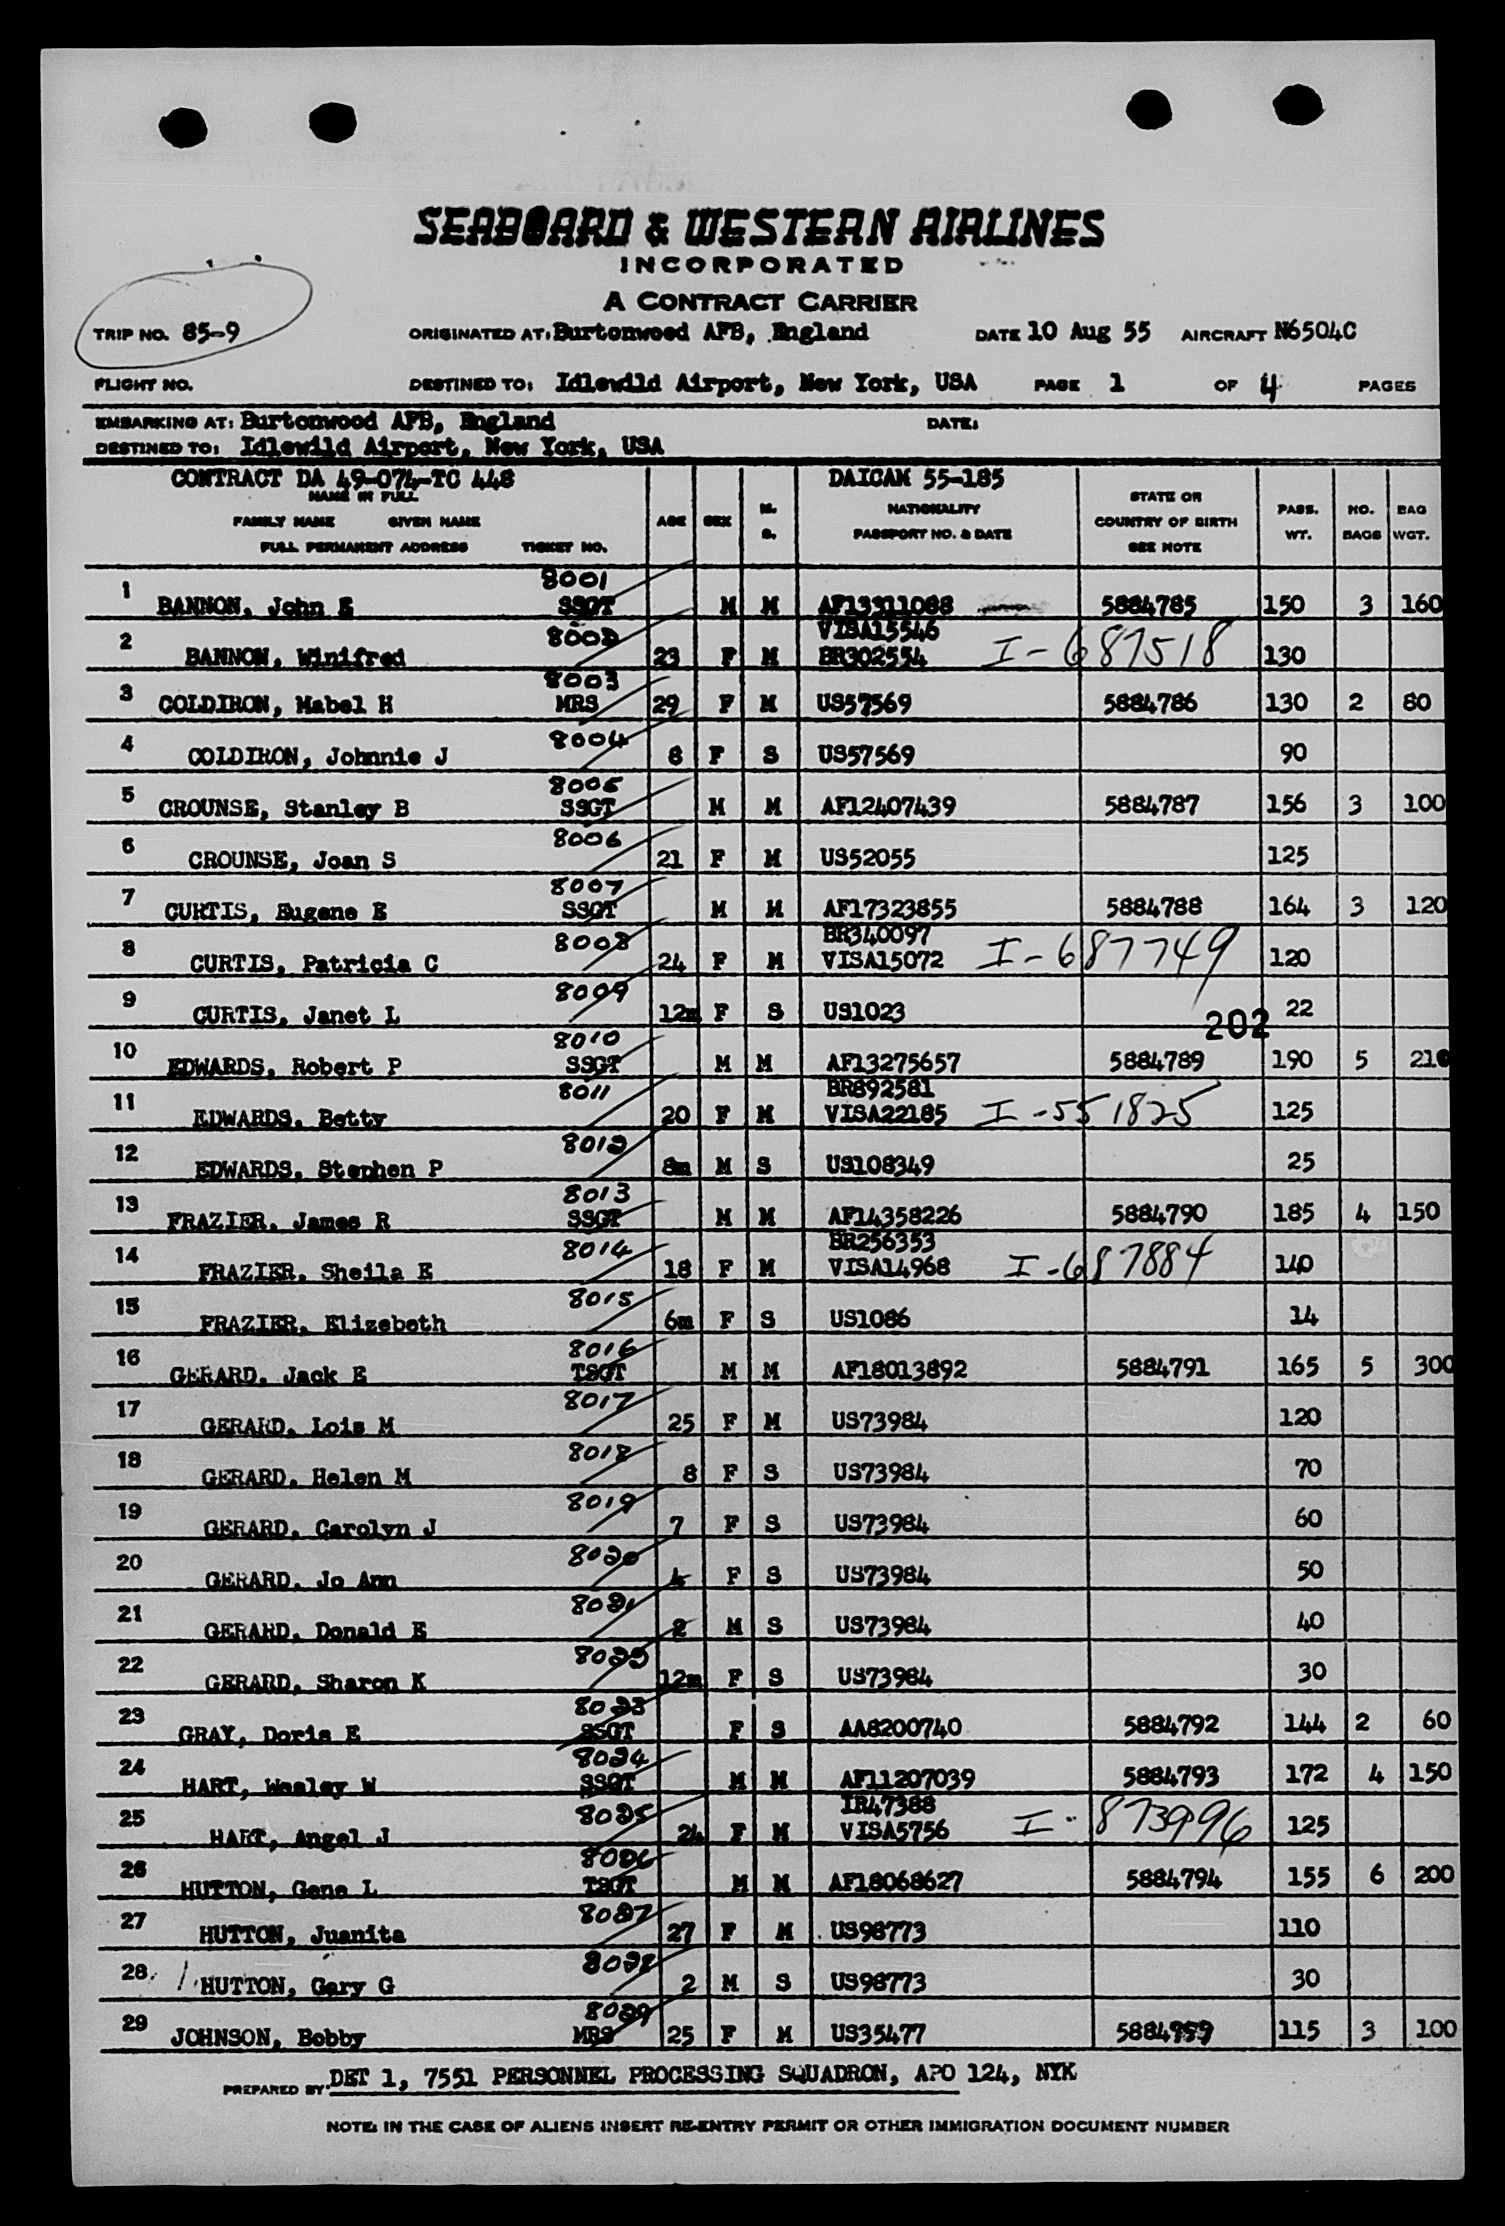 SEABOARD & WESTERN AIRLINES
INCORPORATED
A CONTRACT CARRIER
TRIP NO. 85-9 ORIGINATED AT: Burtonwood AFB, England DATE 10 Aug 55 AIRCRAFT N6504C
FLIGHT NO. DESTINED TO: Idlewild Airport, New York, USA PAGE 1 OF 4 PAGES
EMBARKING AT: Burtonwood AFB, England DATE:
DESTINED TO: Idlewild Airport, New York, USA
CONTRACT DA 49-074-TC 448 DAICAM 55-185
NAME IN FULL
FAMILY NAME GIVEN NAME
FULL PERMANENT ADDRESS TICKET NO. AGE SEX M. S. NATIONALITY PASSPORT NO. & DATE STATE OR COUNTRY OF BIRTH SEE NOTE PASS. WT. NO. BAGS BAG WGT.
8001
1 BANNON, John E SSGT M M AF13311088 5884785 150 3 160
8002 VISA15546
2 BANNON, Winifred 23 F M BR302554 I-687518 130
8003
3 COLDIRON, Mabel H MRS 29 F M US57569 5884786 130 2 80
8004
4 COLDIRON, Johnnie J 8 F S US57569 90
8005
5 CROUNSE, Stanley B SSGT M M AF12407439 5884787 156 3 100
8006
6 CROUNSE, Joan S 21 F M US52055 125
8007
7 CURTIS, Eugene E SSGT M M AF17323855 5884788 164 3 120
8008 BR340097
8 CURTIS, Patricia C 24 F M VISA15072 I-687749 120
8009
9 CURTIS, Janet L 12m F S US1023 22
202
8010
10 EDWARDS, Robert P SSGT M M AF13275657 5884789 190 5 210
8011 BR892581
11 EDWARDS, Betty 20 F M VISA22185 I-551825 125
8012
12 EDWARDS, Stephen P 8m M S US108349 25
8013
13 FRAZIER, James R SSGT M M AF14358226 5884790 185 4 150
8014 BR256353
14 FRAZIER, Sheila E 18 F M VISA14968 I-687884 140
8015
15 FRAZIER, Elizebeth 6m F S US1086 14
8016
16 GERARD, Jack E TSGT M M AF18013892 5884791 165 5 300
8017
17 GERARD, Lois M 25 F M US73984 120
8018
18 GERARD, Helen M 8 F S US73984 70
8019
19 GERARD, Carolyn J 7 F S US73984 60
8020
20 GERARD, Jo Ann 4 F S US73984 50
8021
21 GERARD, Donald E 2 M S US73984 40
22 GERARD, Sharon K 12m F S US73984 30
8023
23 GRAY, Doris E SSGT F S AA8200740 5884792 144 2 60
8024
24 HART, Wesley W SSGT M M AF11207039 5884793 172 4 150
8025 IR47388
25 HART, Angel J 24 F M VISA5756 I-873996 125
8026
26 HUTTON, Gene L TSGT M M AF18068627 5884794 155 6 200
8027
27 HUTTON, Juanita 27 F M US98773 110
8028
28 HUTTON, Gary G 2 M S US98773 30
8029
29 JOHNSON, Bobby MRS 25 F M US35477 115 3 100
PREPARED BY. DET 1, 7551 PERSONNEL PROCESSING SQUADRON, APO 124, NYK
NOTE: IN THE CASE OF ALIENS INSERT RE-ENTRY PERMIT OR OTHER IMMIGRATION DOCUMENT NUMBER